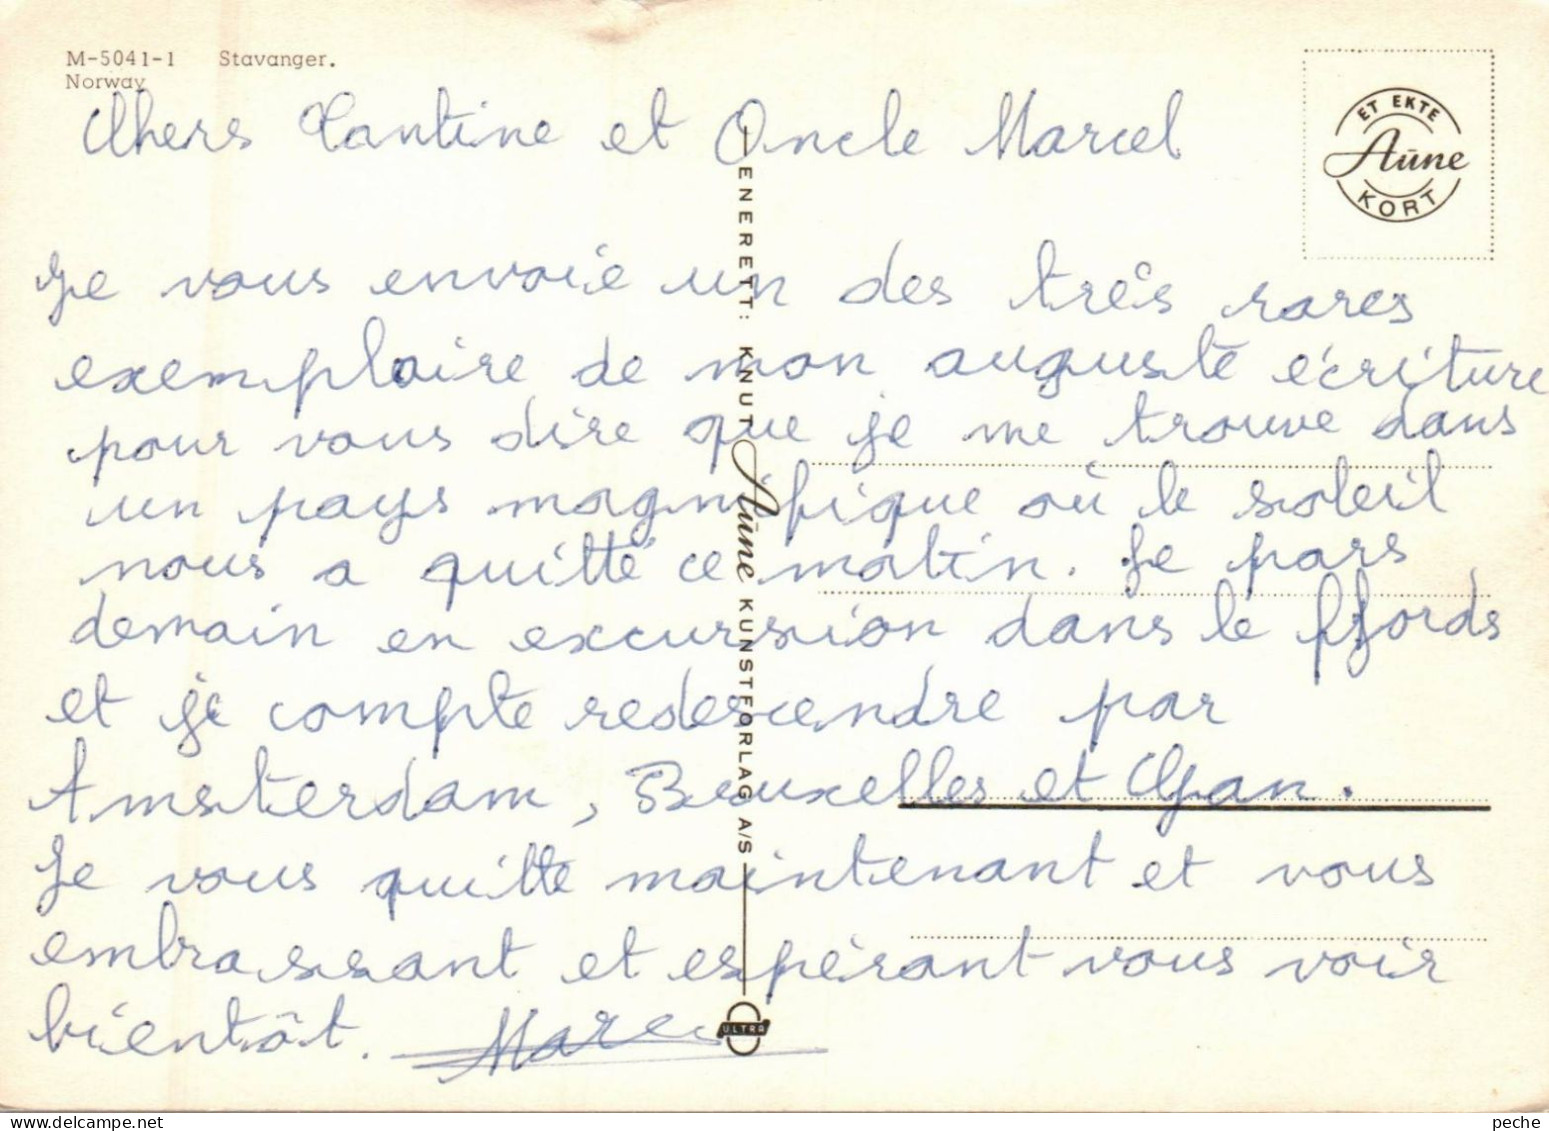 M-5041-1 Stavanger.
Norway
ET EKTE
Aūne
KORT
Chers Tantine et Oncle Marcel
Je vous envoie un des très rares
exemplaire de mon auguste écriture
pour vous dire que je me trouve dans
un pays magnifique où le soleil
nous a quitté ce matin. Je pars
demain en excursion dans le fjords
et je compte redescendre par
Amsterdam, Bruxelles et Gan.
Je vous quitte maintenant et vous
embrassant et espérant vous voir
bientôt. Marc
ENERETT: KNUT Aūne KUNSTFORLAG A/S
ULTRA
peche